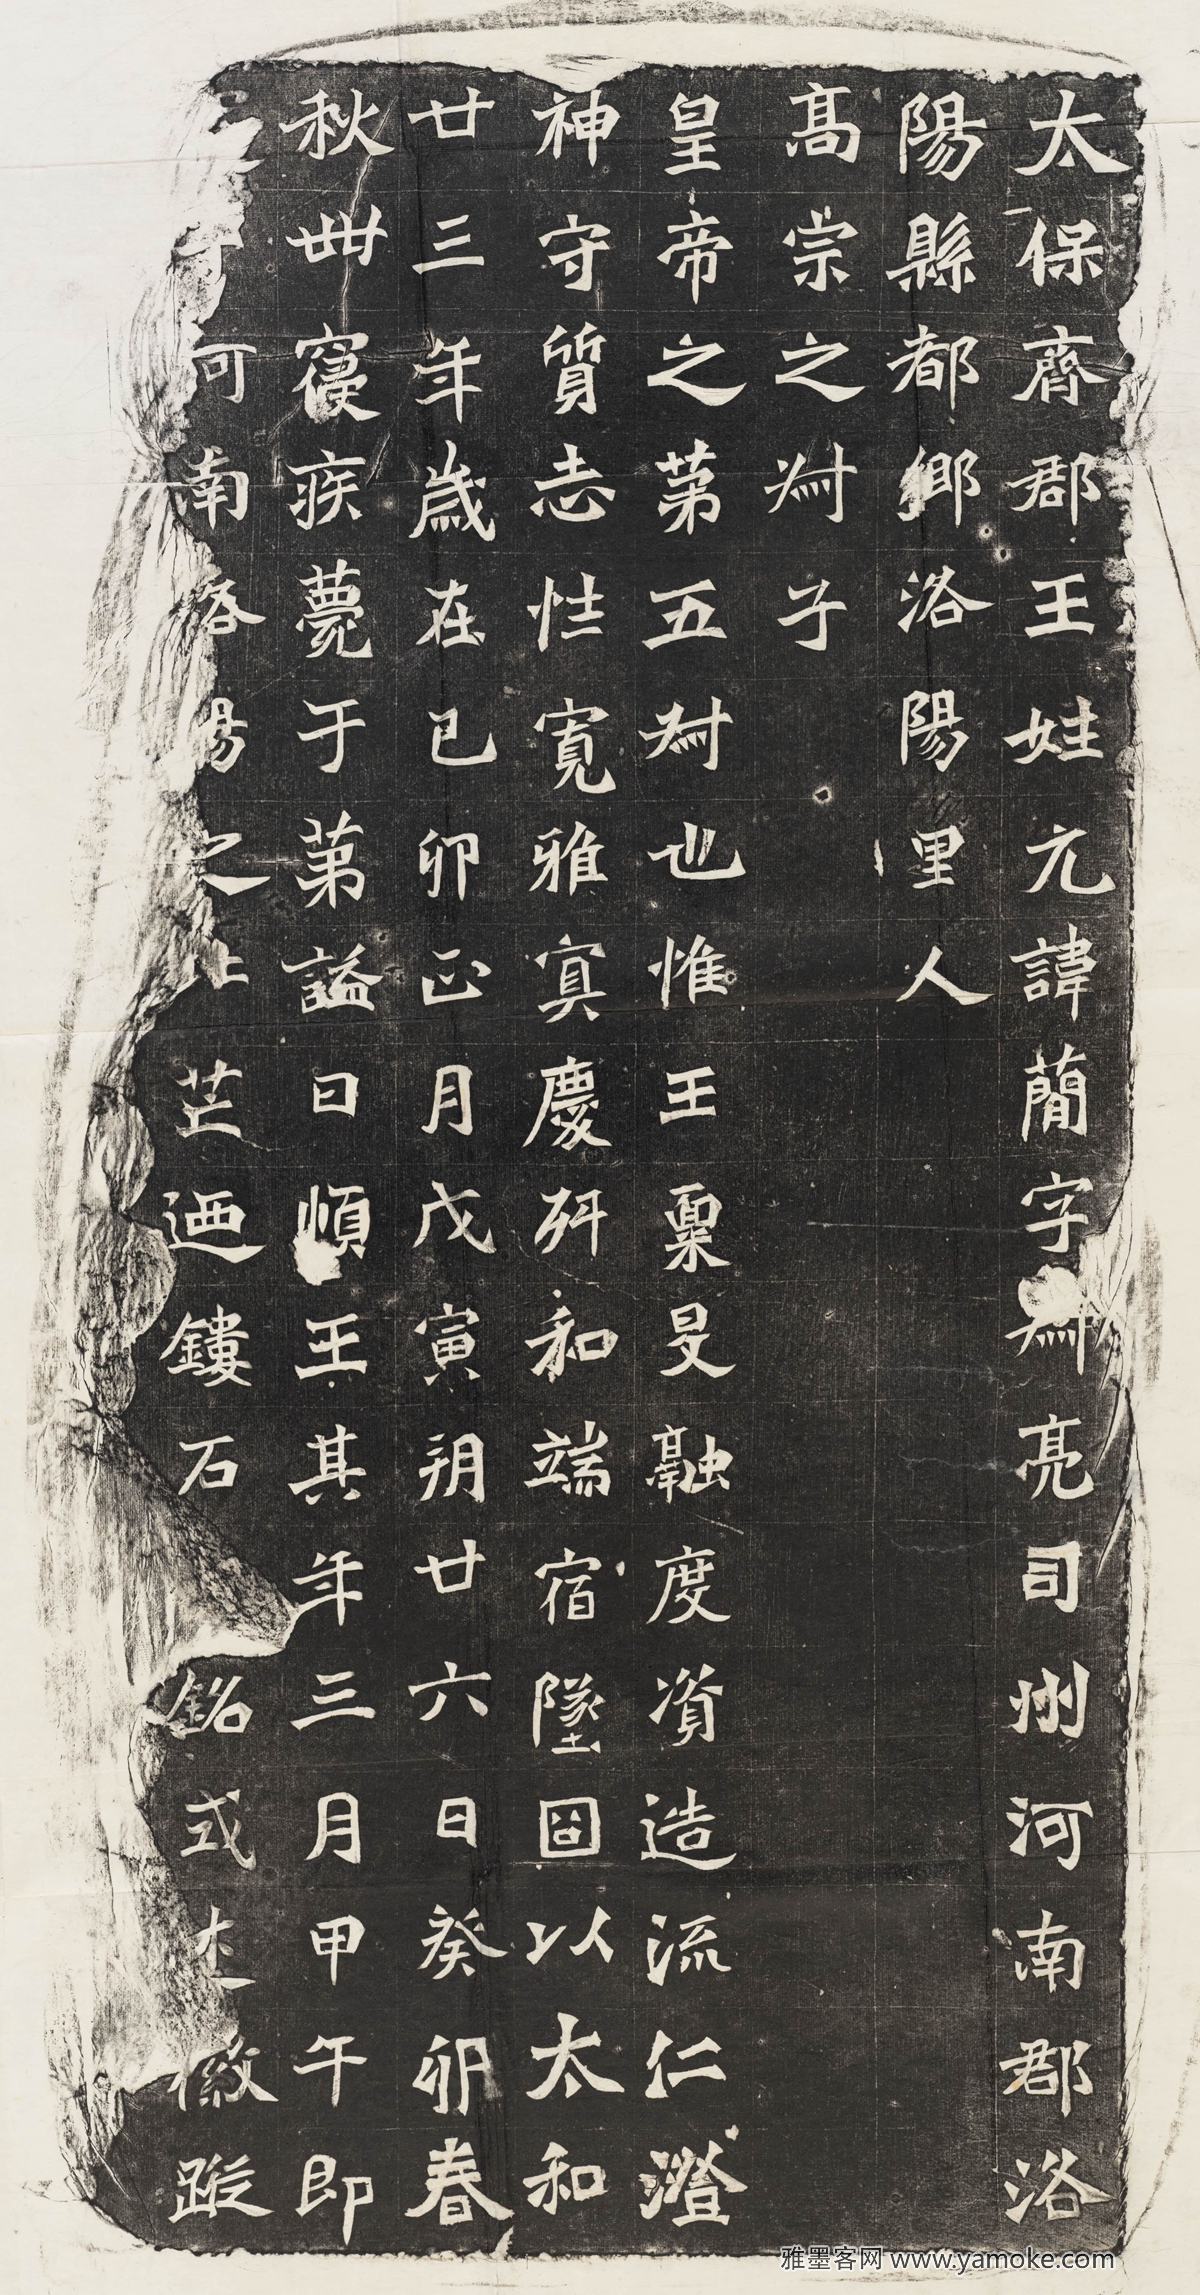 太保齊郡王姓元諱蕳字叔亮司州河南郡洛
陽縣都鄉洛陽里人
高宗之叔子
皇帝之第五叔也惟王稟旻融度資造流仁澄
神守質志性寬雅寘慶舛和端宿墜固以太和
廿三年歲在己卯正月戊寅朔廿六日癸卯春
秋卌寑疾薨于第謚曰順王其年三月甲午即
河南洛陽之芒迺鏤石銘式述徽蹤
雅墨客网 www.yamoke.com